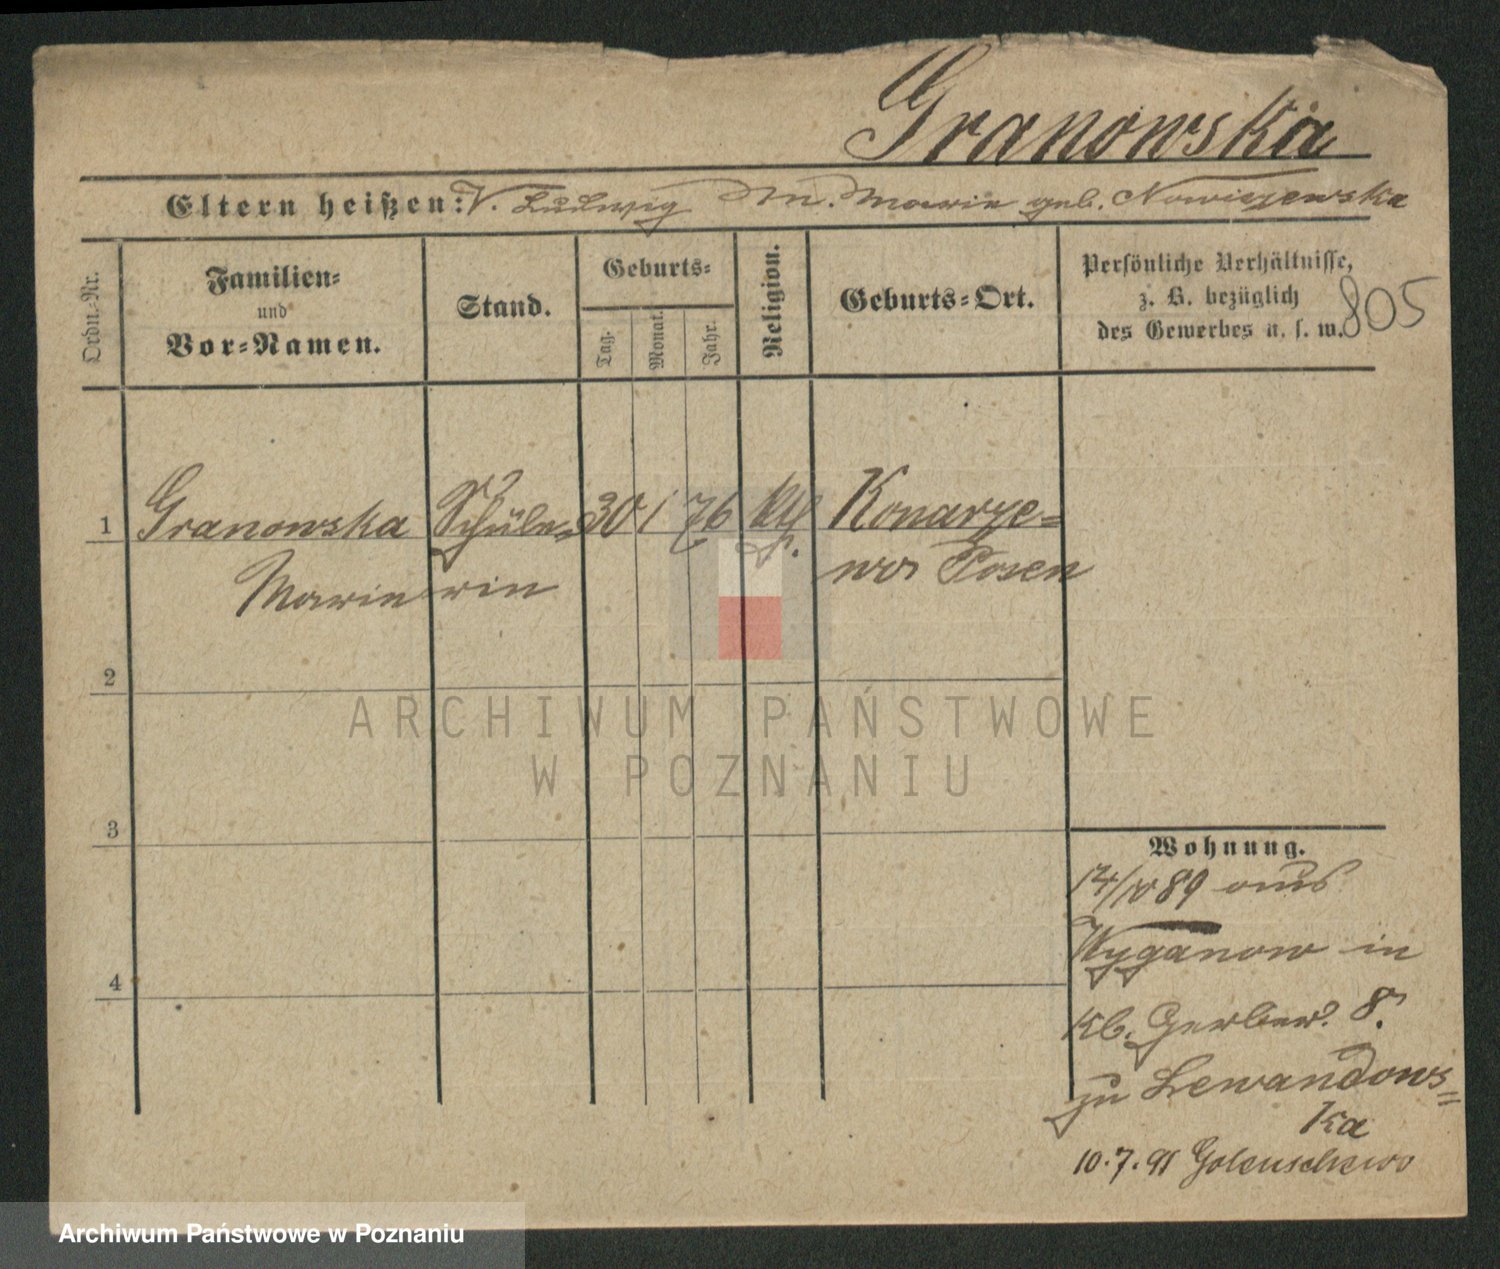 Granowska
Eltern heißen: V. Ludwig M. Marie geb. Nowiszewska
Ordn.-Nr.
Familien-
und
Vor-Namen.
Stand.
Geburts-
Tag.
Monat.
Jahr.
Religion.
Geburts-Ort.
Persönliche Verhältnisse,
z. B. bezüglich
des Gewerbes u. s. w.
805
1 Granowska Schüle- 30 1 76 kth. Konarze-
Marie rin wo Posen
2
3
4
Wohnung.
89 aus
Wyganow in
Kl. Gerber. 8.
zu Lewandows-
ka
10.7.91 Golenschewo
ARCHIWUM PAŃSTWOWE
W POZNANIU
Archiwum Państwowe w Poznaniu